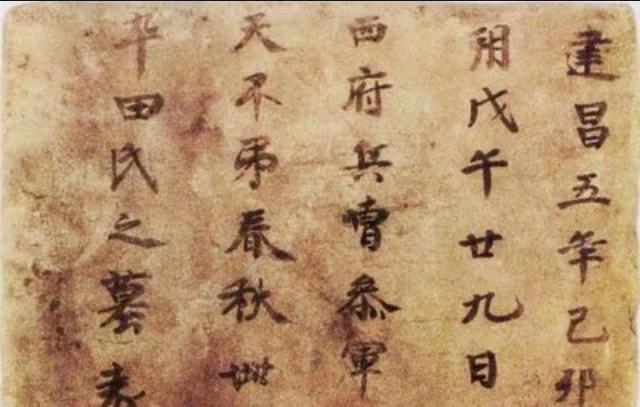 建昌五年己卯
朔戊午廿九日
西府兵曹叅軍
天不弔春秋卌
卒田氏之墓表